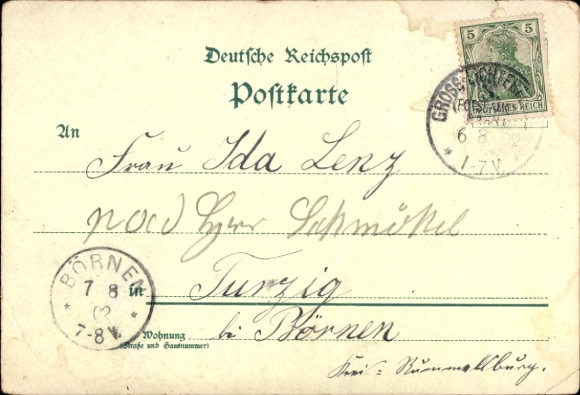 Deutsche Reichspost
Postkarte
5 5
DEUTSCHES REICH
GROSS-LICHTER
6 8
1-7 V.
An
Frau Ida Lenz
Herr Schmökel
in Turzig
Wohnung bei Börnen
(Straße und Hausnummer)
Kreis Rummelsburg.
BÖRNEN
7 8
02
7-8 V.